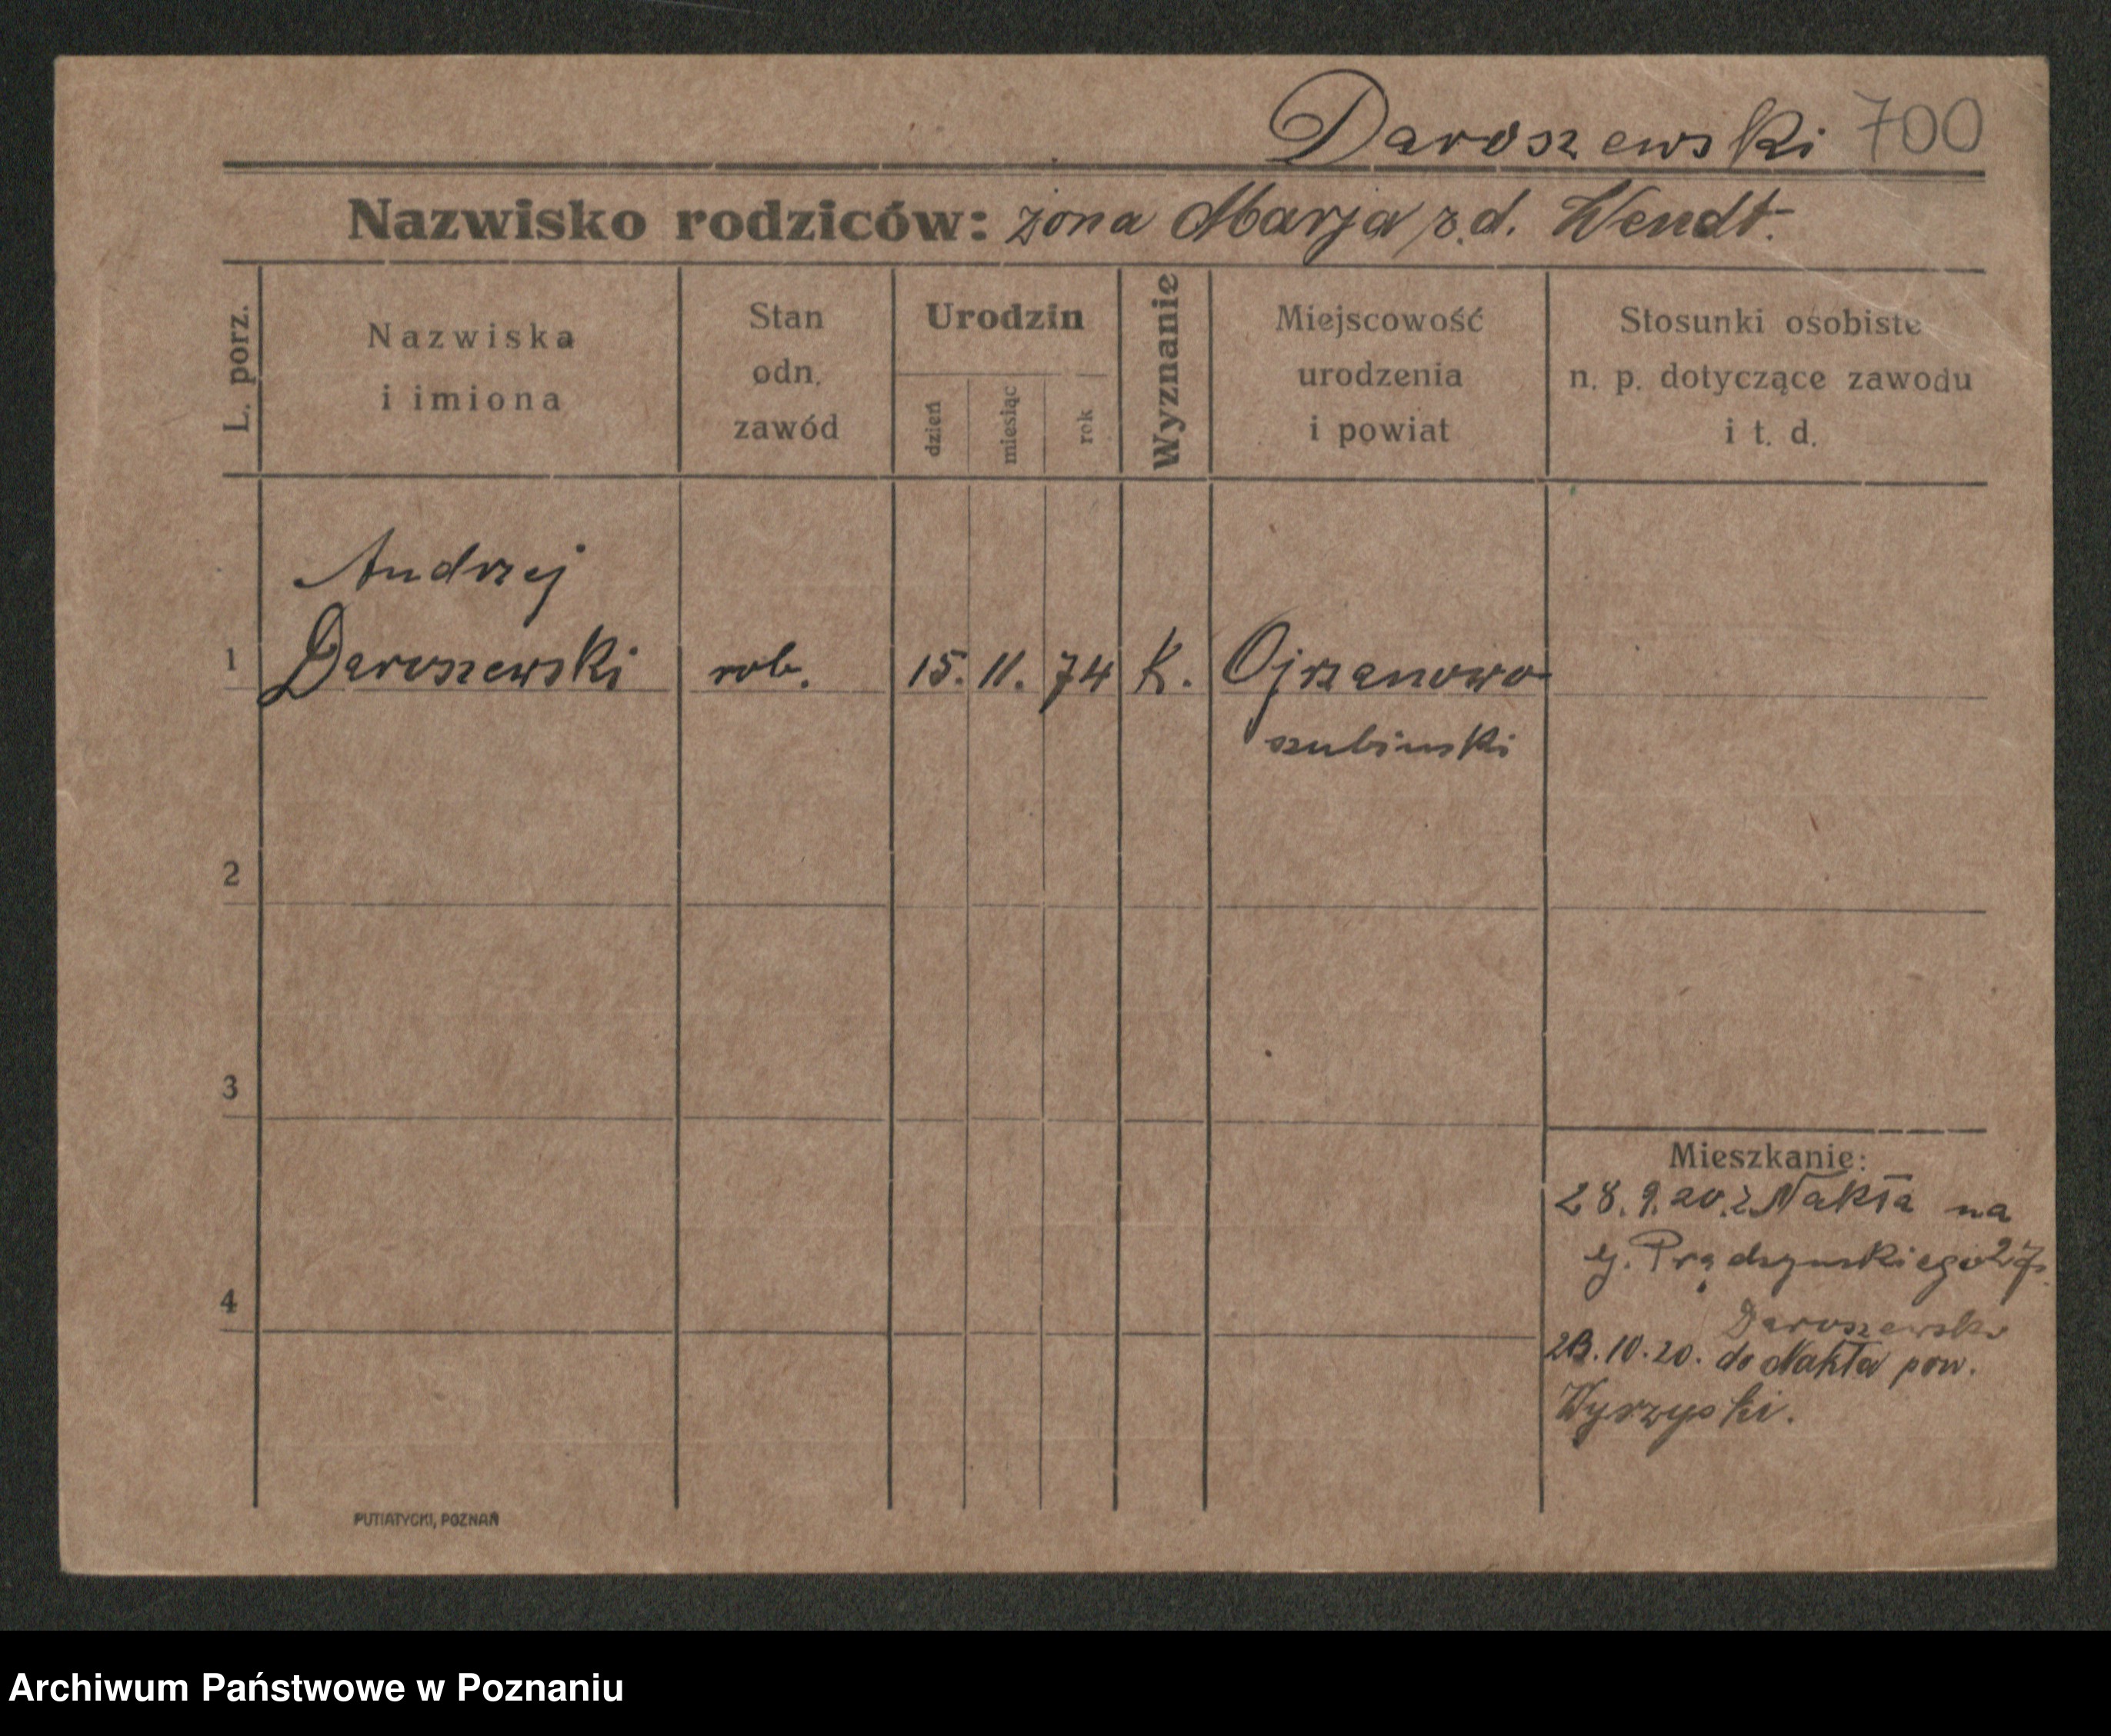 Daroszewski 700
Nazwisko rodziców: żona Marja z.d. Wendt.
L. porz.
Nazwiska
i imiona
Stan
odn.
zawód
Urodzin
dzień
miesiąc
rok
Wyznanie
Miejscowość
urodzenia
i powiat
Stosunki osobiste
n. p. dotyczące zawodu
i t. d.
Andrzej
1 Daroszewski rob. 15. 11. 74 K. Ojrzanowo
szubinski
2
3
4
Mieszkanie:
28.9.20. z Nakła na
Prądzynskiego 27.
Daroszewski
10.20. do Nakła pow.
Wyrzyski.
PUTIATYCKI, POZNAŃ
Archiwum Państwowe w Poznaniu